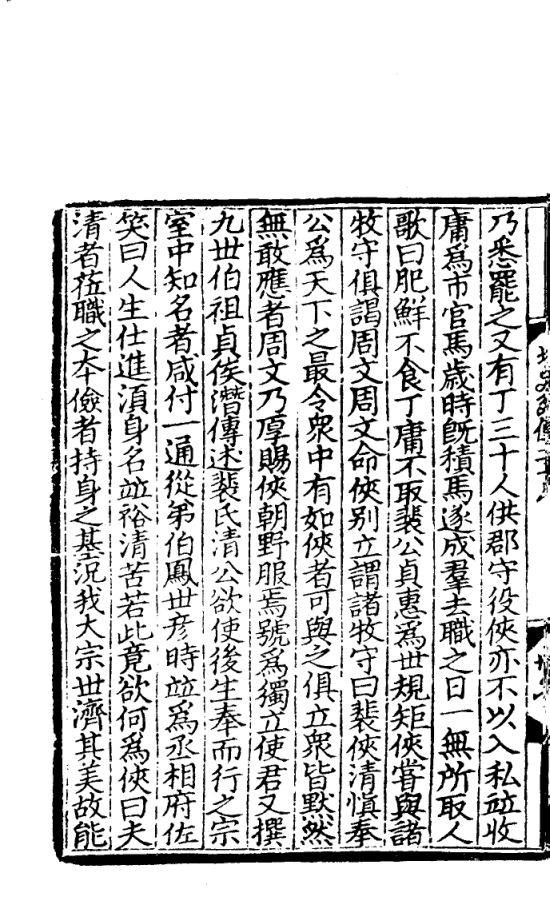 乃悉罷之又有丁三十人供郡守役俠亦不以入私並收
庸爲市官馬歲時旣積馬遂成羣去職之日一無所取人
歌曰肥鮮不食丁庸不取裴公貞惠爲世規矩俠嘗與諸
牧守俱謁周文周文命俠别立謂諸牧守曰裴俠清愼奉
公爲天下之最令衆中有如俠者可與之俱立衆皆默然
無敢應者周文乃厚賜俠朝野服焉號爲獨立使君又撰
九世伯祖貞侯潛傳述裴氏清公欲使後生奉而行之宗
室中知名者咸付一通從弟伯鳳世彦時並爲丞相府佐
笑曰人生仕進湏身名並裕清苦若此竟欲何爲俠曰夫
清者莅職之夲儉者持身之基況我大宗世濟其美故能